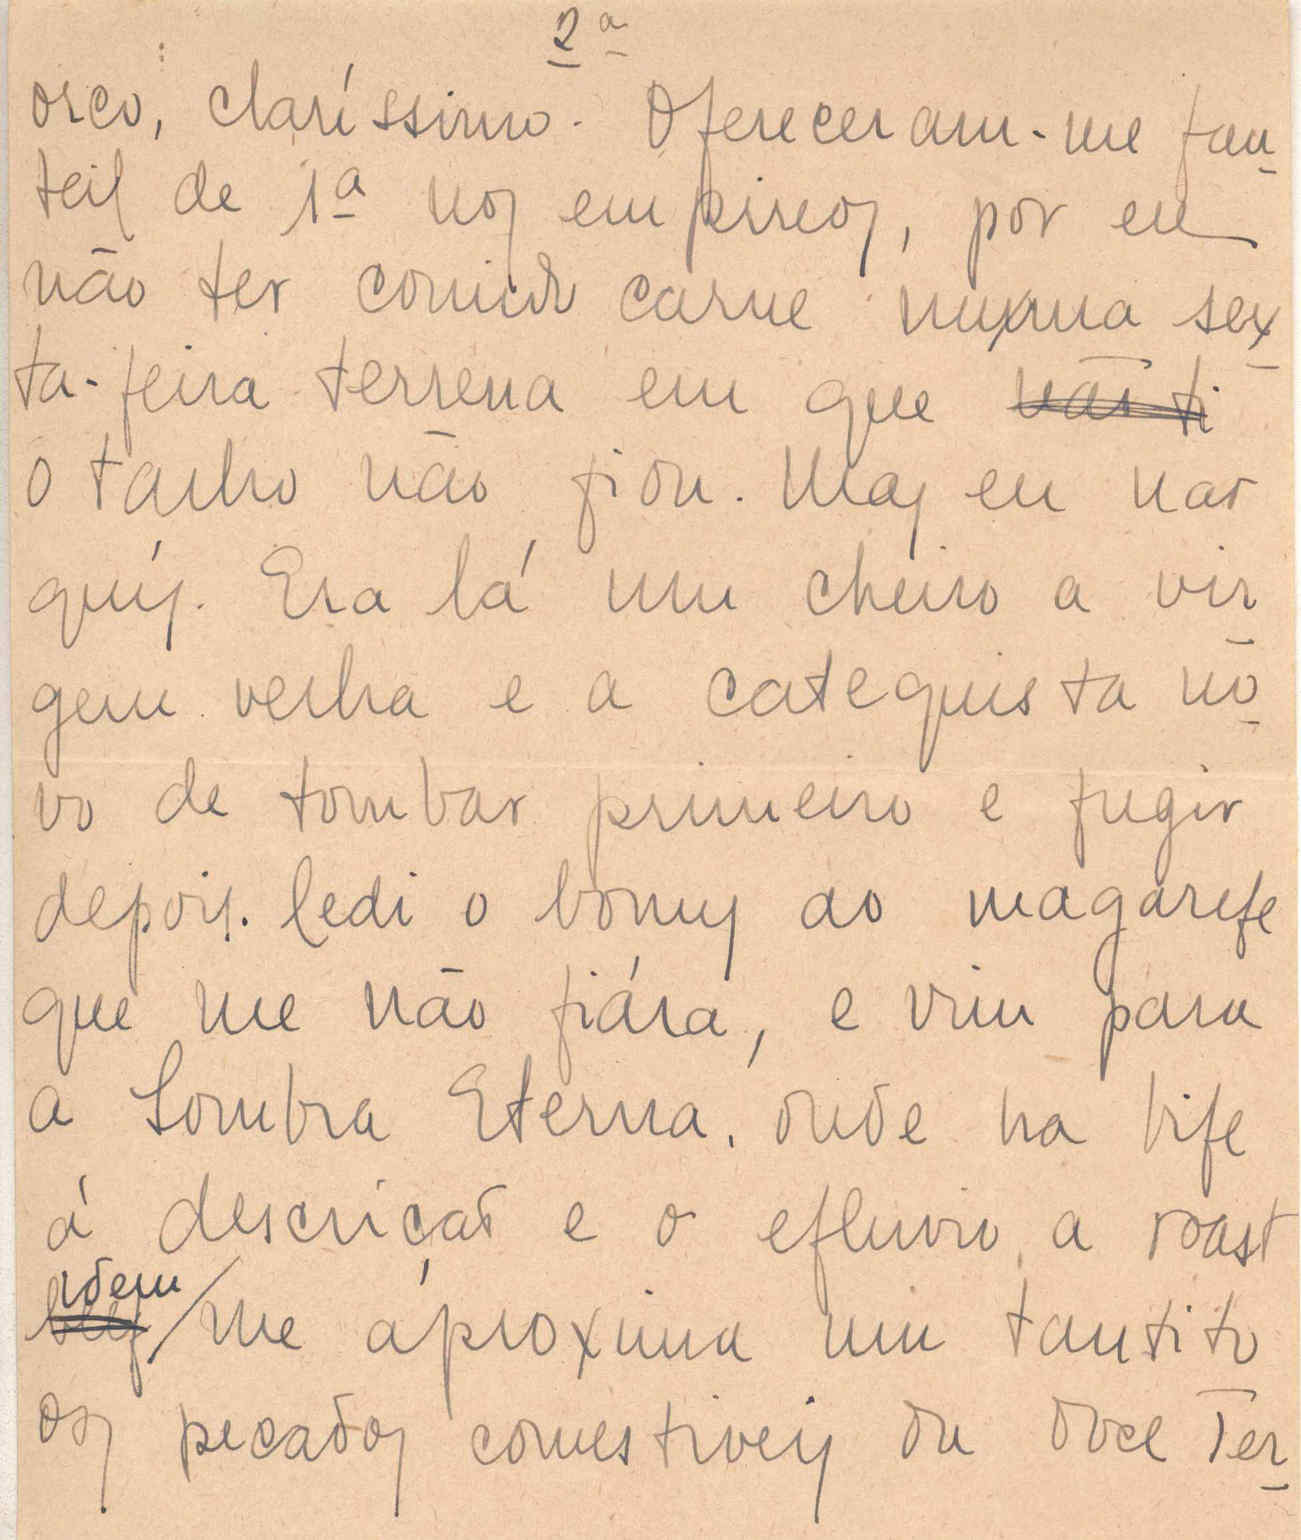 2ª
orco, claríssimo. Ofereceram-me fau-
teil de 1ª nos empireos, por eu
não ter comido carne numa sex-
ta-feira terrena em que não ti
o talho não fiou. Mas eu não
quis. Era lá um cheiro a vir
gem velha e a catequista nô-
vo de tombar primeiro e fugir
depois. Cedi o bonus ao magarefe
que me não fiára, e vim para
a Sombra Eterna, onde ha bife
á descrição e o efluvio a roast
idem
beef me áproxima um tantito
os pecados comestiveis du doce Ter-